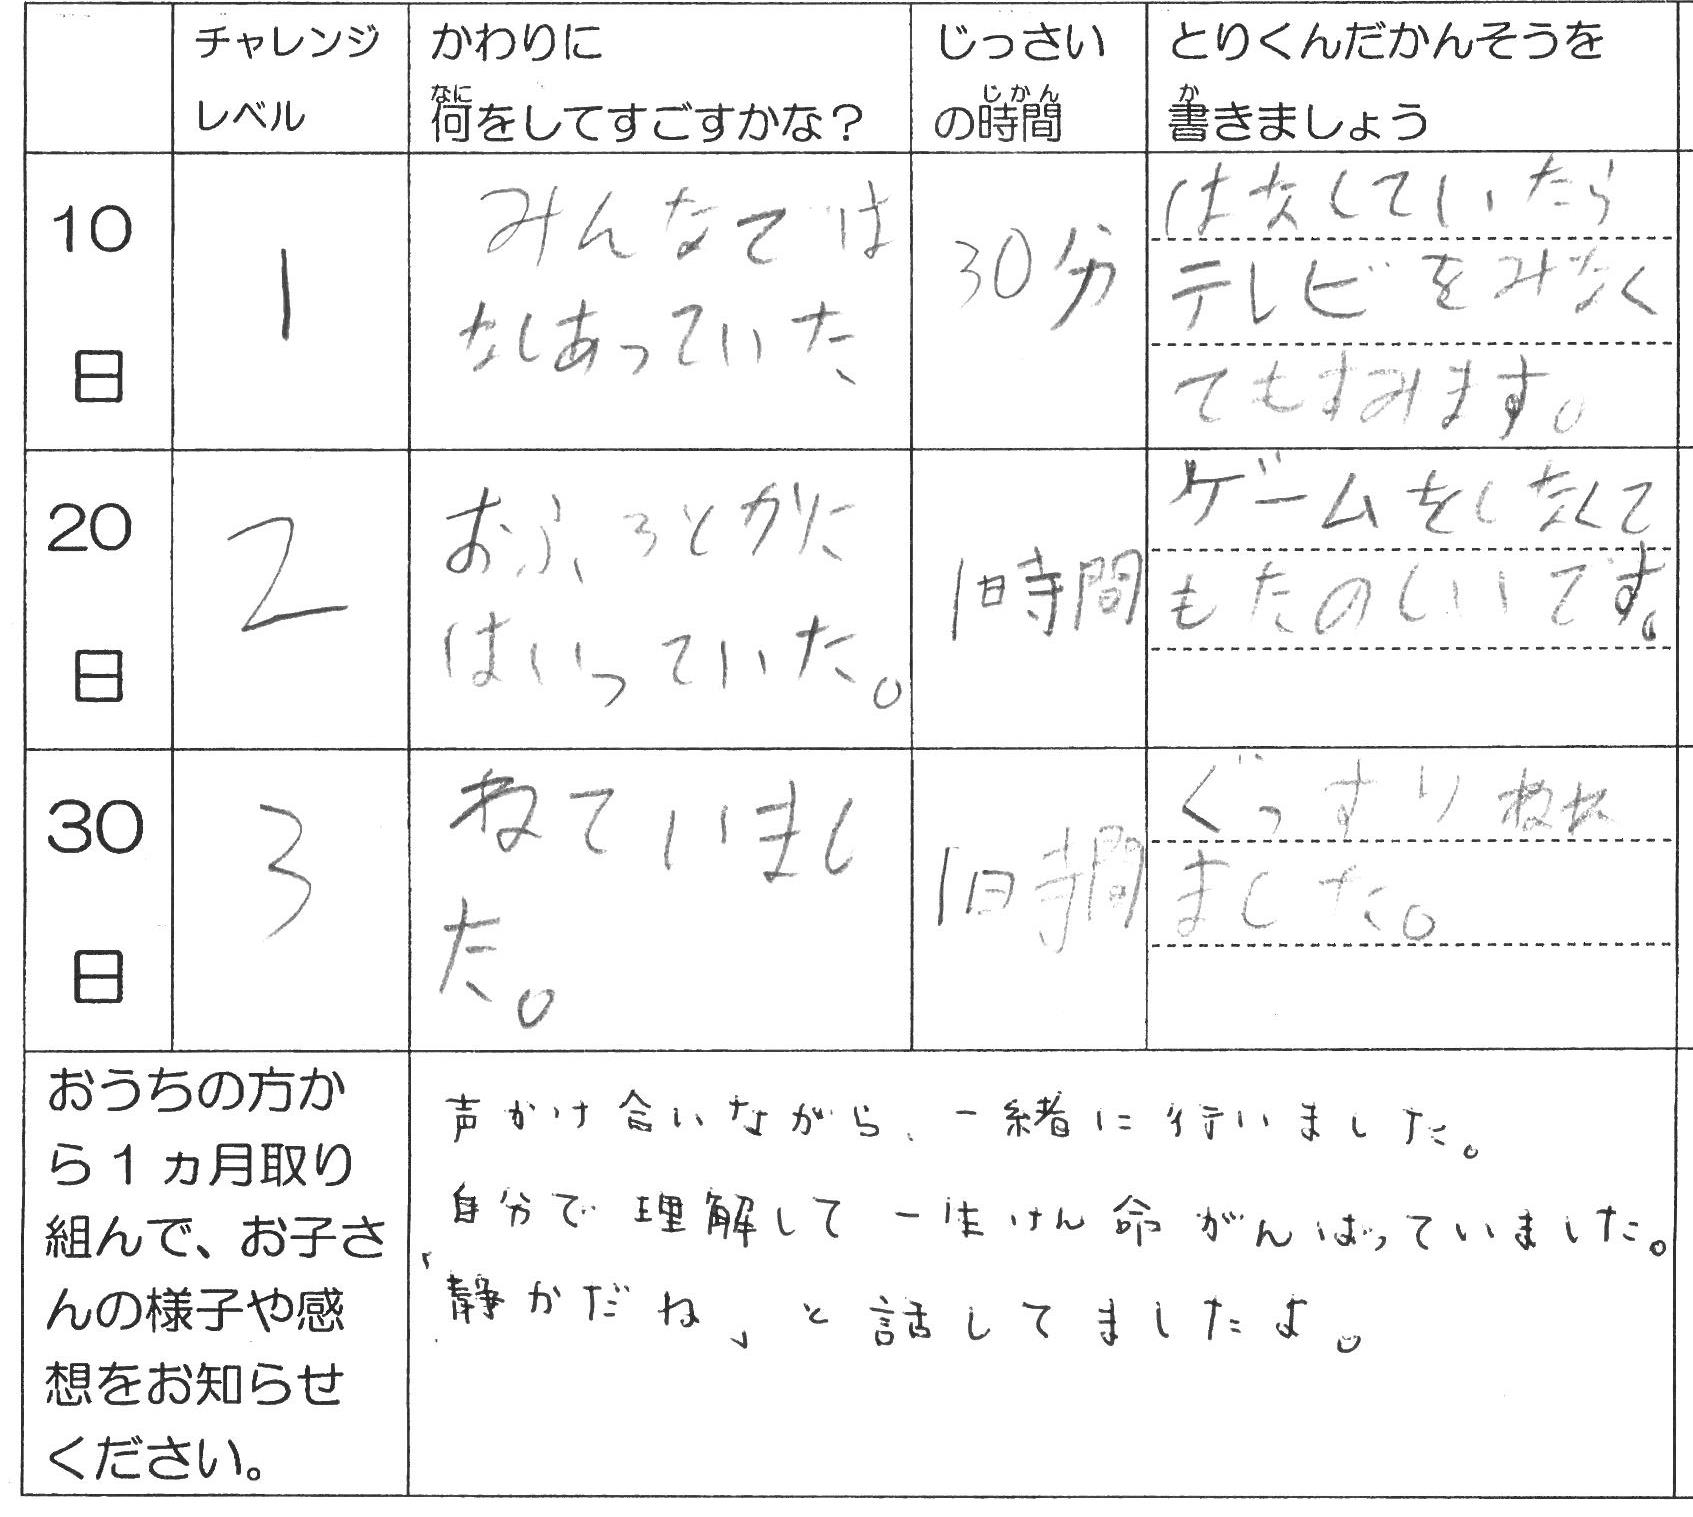 チャレンジ
レベル
かわりに
何をしてすごすかな？
なに
じっさい
の時間
じかん
とりくんだかんそうを
書きましょう
か
10
日
1
みんなでは
なしあっていた
30分
はなしていたら
テレビをみなく
てもすみます。
20
日
2
おふろとかに
はいっていた。
1時間
ゲームをしなくて
もたのしいです。
30
日
3
ねていまし
た。
1時間
ぐっすり
ました。
おうちの方か
ら1ヵ月取り
組んで、お子さ
んの様子や感
想をお知らせ
ください。
声かけ合いながら、一緒に行いました。
自分で理解して一生けん命がんばっていました。
「静かだね」と話してましたよ。